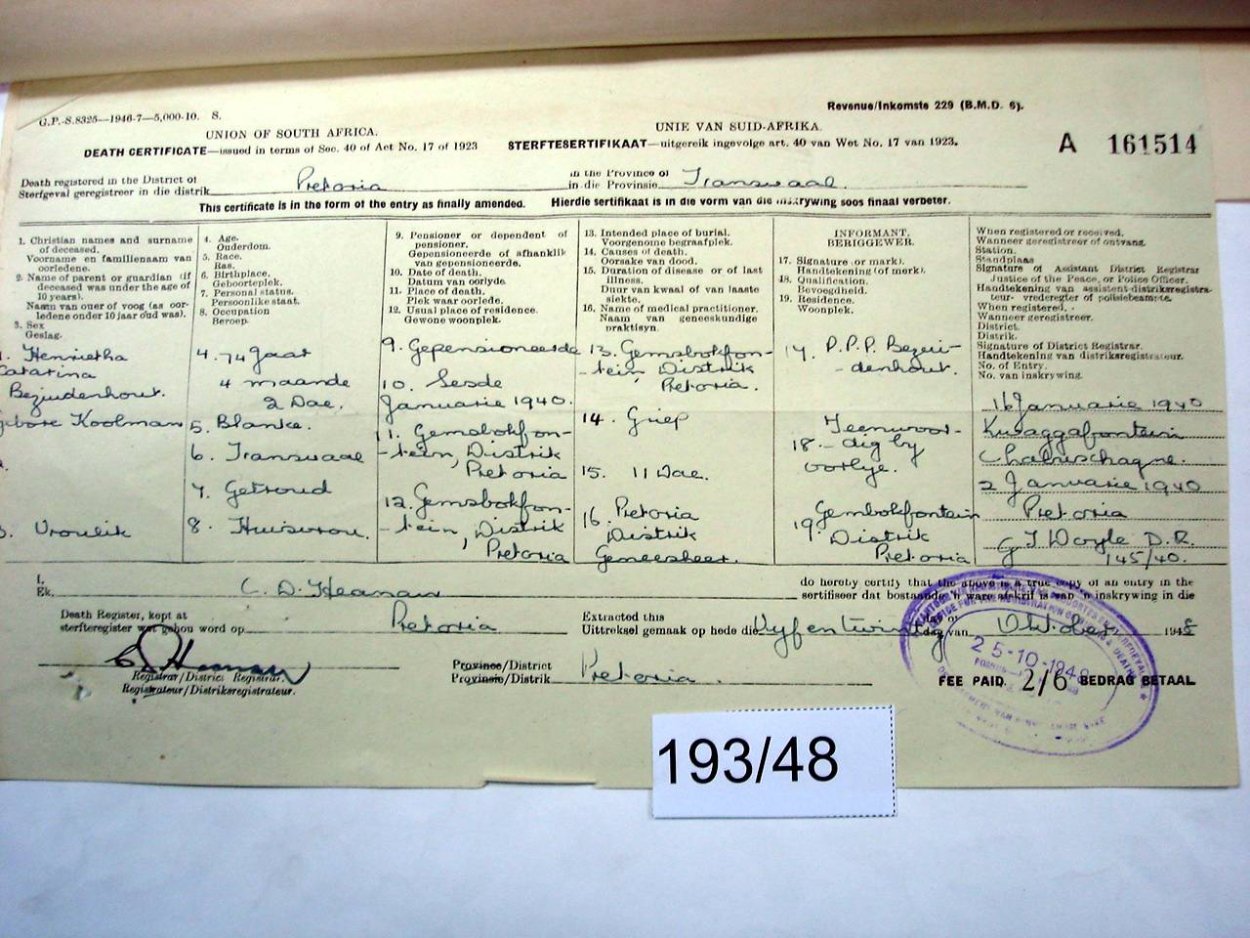 G.P.-S.8325—1946-7—5,000-10. S.
Revenue/Inkomste 229 (B.M.D. 6).
UNION OF SOUTH AFRICA.
UNIE VAN SUID-AFRIKA.
DEATH CERTIFICATE—issued in terms of Sec. 40 of Act No. 17 of 1923
STERFTESERTIFIKAAT—uitgereik ingevolge art. 40 van Wet No. 17 van 1923.
A 161514
Death registered in the District of
Sterfgeval geregistreer in die distrik Pretoria
in the Province of
in die Provinsie Transvaal.
This certificate is in the form of the entry as finally amended.
Hierdie sertifikaat is in die vorm van die inskrywing soos finaal verbeter.
1. Christian names and surname
of deceased.
Voorname en familienaam van
oorledene.
2. Name of parent or guardian (if
deceased was under the age of
10 years).
Naam van ouer of voog (as oor-
ledene onder 10 jaar oud was).
3. Sex
Geslag.
4. Age.
Ouderdom.
5. Race.
Ras.
6. Birthplace.
Geboorteplek.
7. Personal status.
Persoonlike staat.
8. Occupation
Beroep.
9. Pensioner or dependent of
pensioner.
Gepensioeneerde of afhanklik
van gepensioeneerde.
10. Date of death.
Datum van oorlyde.
11. Place of death.
Plek waar oorlede.
12. Usual place of residence.
Gewone woonplek.
13. Intended place of burial.
Voorgenome begraafplek.
14. Causes of death.
Oorsake van dood.
15. Duration of disease or of last
illness.
Duur van kwaal of van laaste
siekte.
16. Name of medical practitioner.
Naam van geneeskundige
praktisyn.
INFORMANT.
BERIGGEWER.
17. Signature (or mark).
Handtekening (of merk).
18. Qualification.
Bevoegdheid.
19. Residence.
Woonplek.
When registered or received.
Wanneer geregistreer of ontvang.
Station.
Standplaas
Signature of Assistant District Registrar
Justice of the Peace, or Police Officer.
Handtekening van assistent-distriksregistra-
teur- vrederegter of polisiebeampte.
When registered.
Wanneer geregistreer.
District.
Distrik.
Signature of District Registrar.
Handtekening van distriksregistrateur.
No. of Entry.
No. van inskrywing.
1. Henrietha
Catarina
Bezuidenhout.
gebore Koolman
3. Vroulik
4. 74 Jaar
4 maande
2 Dae.
5. Blanke.
6. Transvaal
7. Getroud
8. Huisvrou.
9. Gepensioneerde
10. Sesde
Januarie 1940.
11. Gemsbokfon-
-tein, Distrik
Pretoria
12. Gemsbokfon-
-tein, Distrik
Pretoria
13. Gemsbokfon-
-tein Distrik
Pretoria.
14. Griep
15. 11 Dae.
16. Pretoria
Distrik
Geneesheer.
17. P.P.P. Bezui-
-denhout.
Teenwoor-
18. -dig by
oorlye.
Gembokfontein
19. Distrik
Pretoria
16 Januarie 1940
Kwaggafontein
Januarie 1940
Pretoria
G J Doyle D.R.
145/40.
I,
Ek, C. D. Heanan
do hereby certify that the above is a true copy of an entry in the
sertifiseer dat bostaande 'n ware afskrif is van 'n inskrywing in die
Death Register, kept at
sterfteregister wat gehou word op Pretoria
Extracted this
Uittreksel gemaak op hede die Vyfentwintig dag van Oktober 1948
Registrar/District Registrar.
Registrateur/Distriksregistrateur.
Province/District
Provinsie/Distrik Pretoria.
25-10-1948
FEE PAID 2/6 BEDRAG BETAAL
193/48